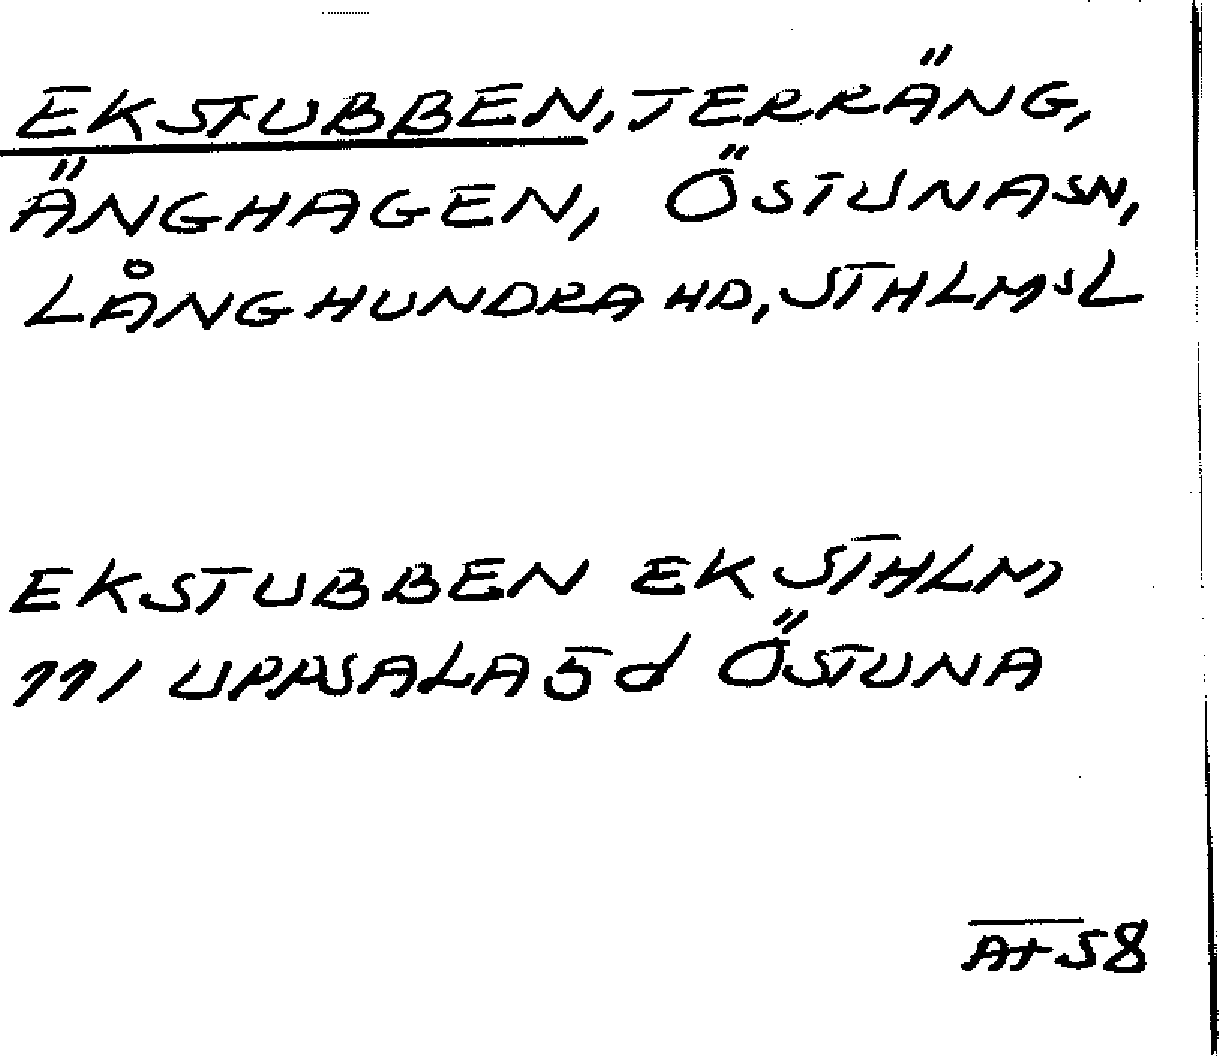 EKSTUBBEN, TERRÄNG,
ÄNGHAGEN, ÖSTUNA SN,
LÅNGHUNDRA HD, STHLMS L
EKSTUBBEN EK STHLM
111 UPPSALA 5d ÖSTUNA
58